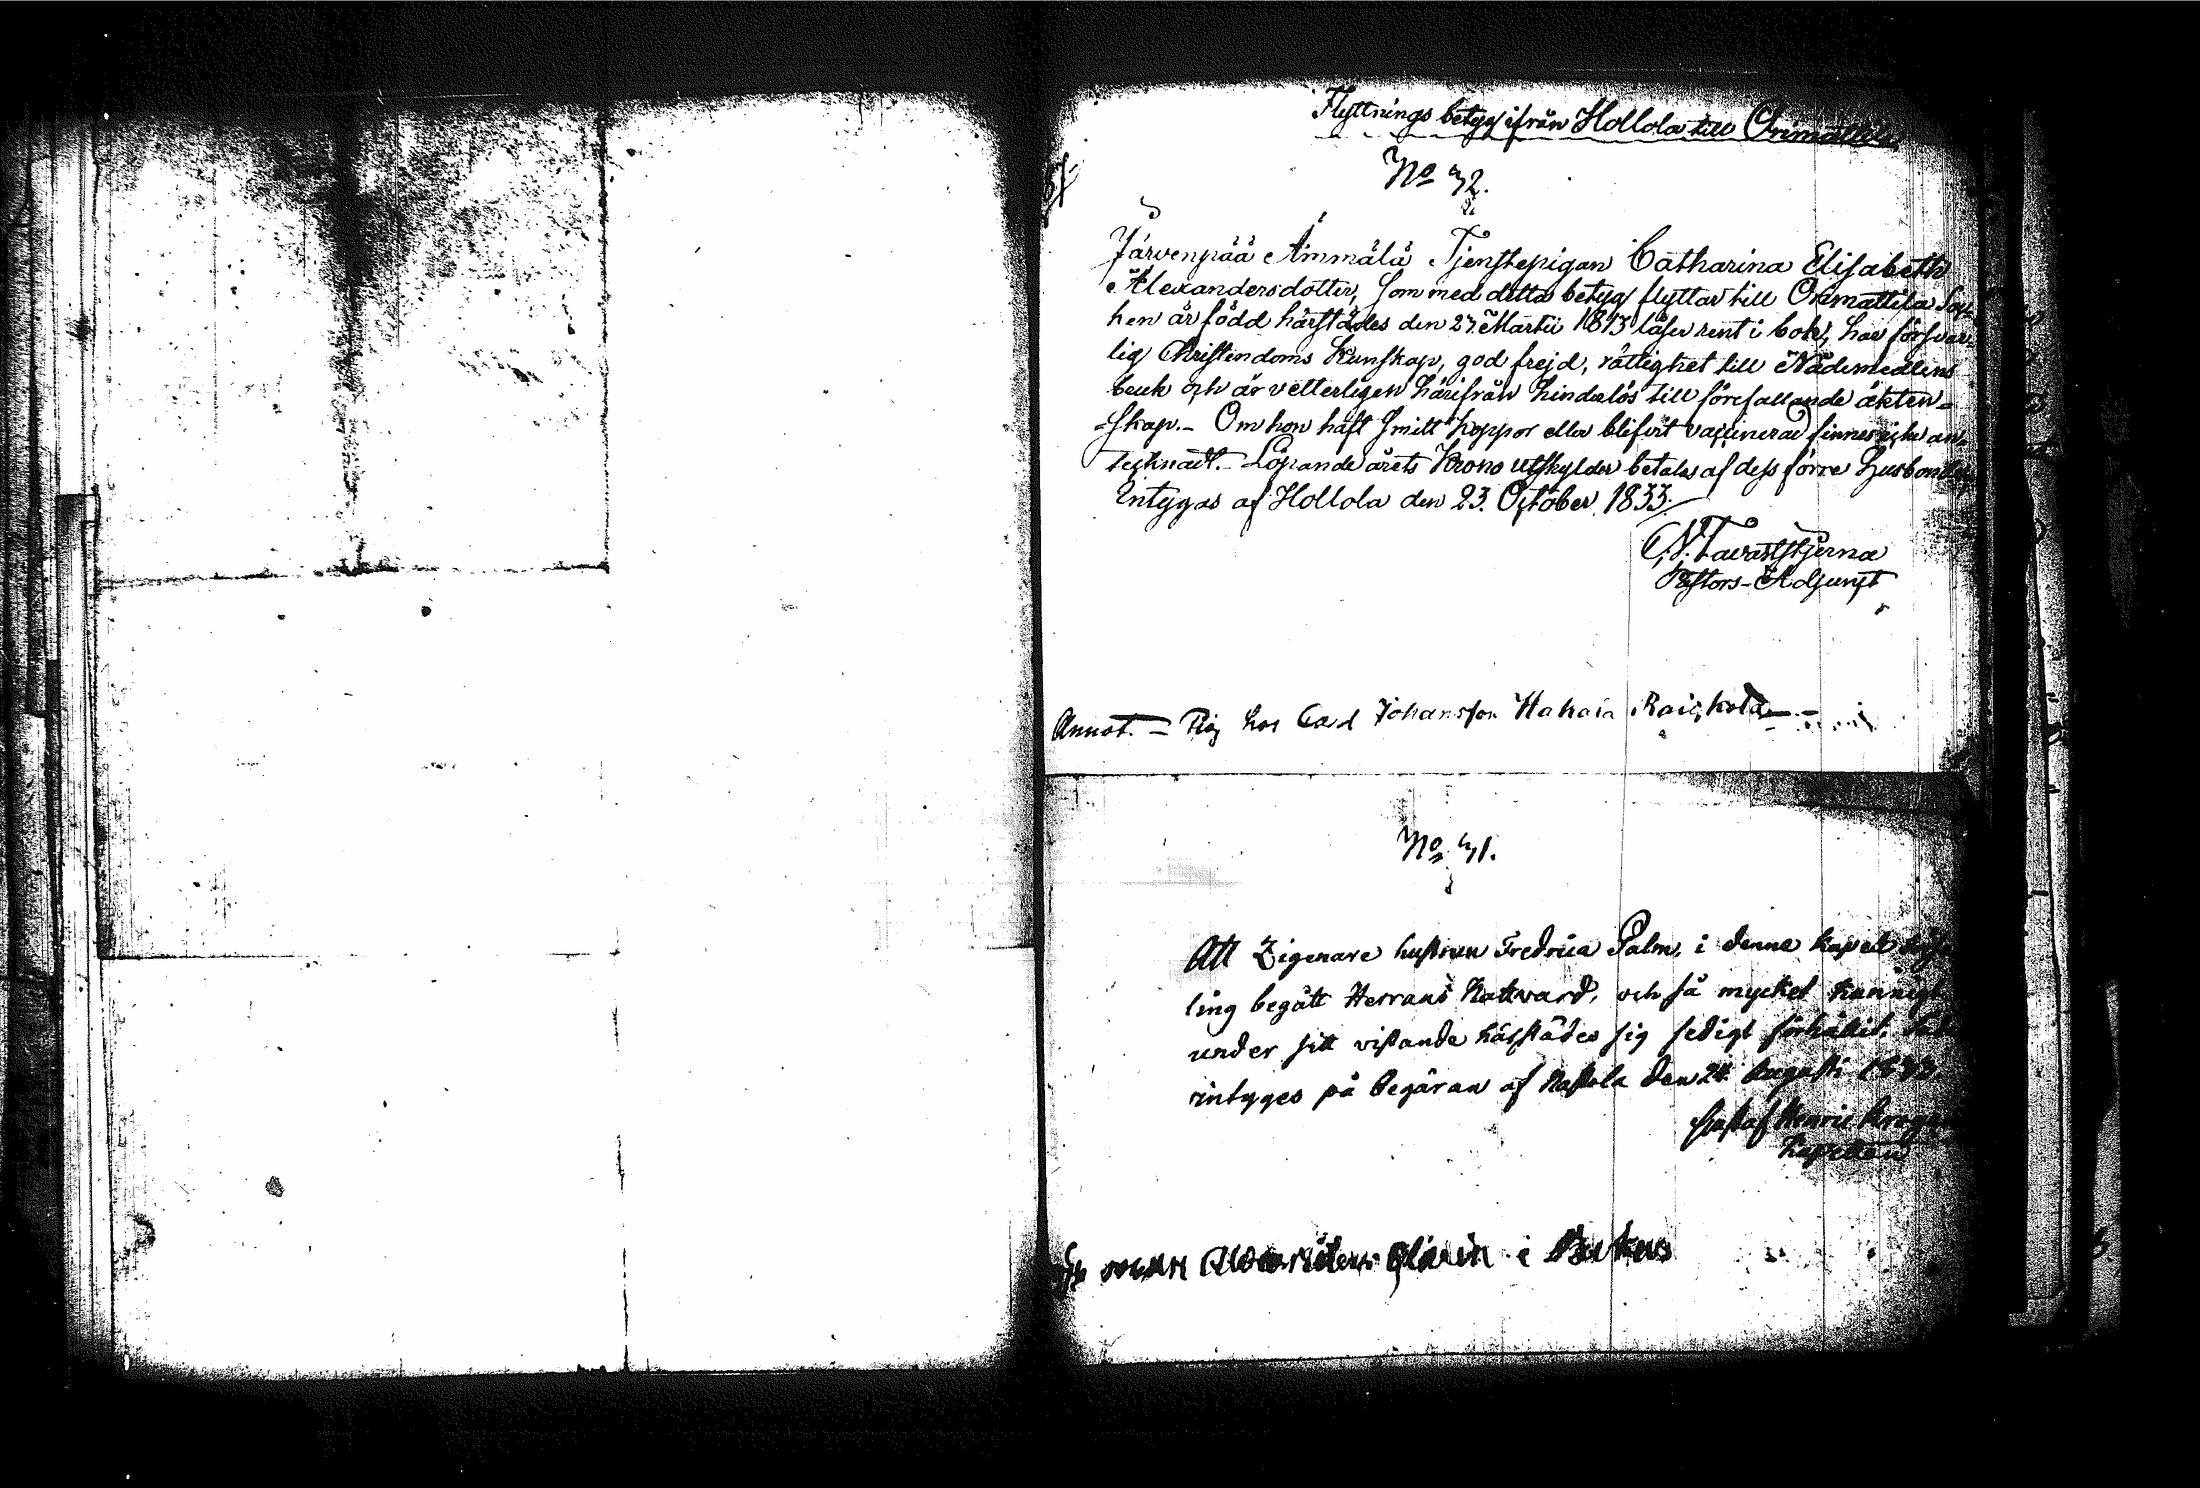 Flyttnings betyg ifrån Hollola till Orimattila.
No 72.
Järvenpää Ammälä Tjenstepigan Catharina Elisabeth
Alexandersdotter, som med detta betyg flyttar till Orimattila Soc-
ken är född härstädes den 27 Martii 1813 läser rent i bok, har försvar-
lig Christendoms Kunskap, god frejd, rättighet till Nådemedlens
bruk och är vetterligen härifrån hinderlös till förefallande äkten-
-skap. - Om hon haft Smitt koppor eller blifvit vaccinerad finnes icke an-
tecknadt. - Löpande årets Krono utskylder betalas af dess förre Husbonde,
Intygas af Hollola den 23. October 1833.
N. Tavaststjerna
Pastors-Adjunct
Annot. = Pig hos Carl Johansson Hahala
No 71.
Att Zigenare hustrun Fredrica Palm, i denna kapell
ling begått Herrans Nattvard, och så mycket kunnigt
under sitt vistande härstädes sig sedigt förhållit,
rintyges på begäran af Nastola den 24 Augusti 1833
Gustaf Henric
Kapellan